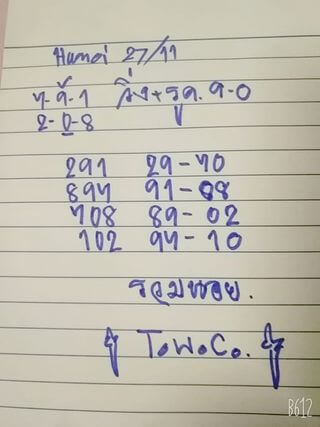 Hanoi 27/11
7-9-1 วิ่ง+รูด.9-0
2-0-8
291 29-70
897 91-08
708 89-02
102 97-10
รวมหอย.
T.W.C.
B612